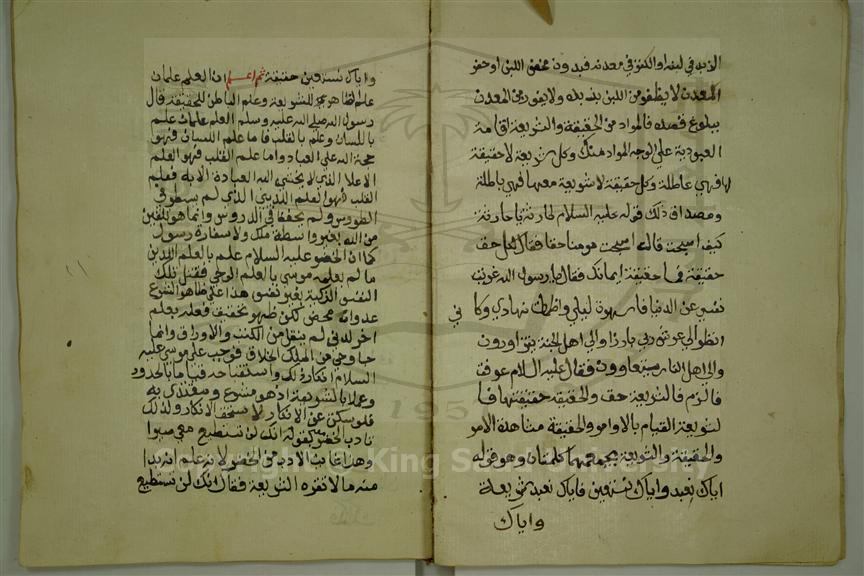 الزبد في لبنه او الكنز في معدنه فبدون مخض اللبن او حفر
المعدن لا يظفر من اللبن بزبده ولا يفوز من المعدن
ببلوغ قصده فالمراد من الحقيقة والشريعة اقامة
العبودية علي الوجه المراد منك وكل شريعة لا حقيقة
لها فهي عاطلة وكل حقيقة لا شريعة معها فهي باطلة
ومصداق ذلك قوله عليه السلام لحارثة يا حارثة
كيف اصبحت قال اصبحت مومنا حقا فقال لكل حق
حقيقة فما حقيقة ايمانك فقال يا رسول الله عزفت
نفسي عن الدنيا فاسهرت ليلي واظمات نهاري وكاني
انظر الي عرش ربي بارزا والي اهل الجنة يتزاورون
والي اهل النار يتعاوون فقال عليه السلام عرفت
فالزم فالشريعة حق والحقيقة حقيقتها فا
لشريعة القيام بالاوامر والحقيقة مشاهدة الامر
والحقيقة والشريعة يجمعهما كلمتان وهو قوله
اياك نعبد واياك نستعين فاياك نعبد شريعة
واياك
واياك نستعين حقيقة ثم اعلم ان العلم علمان
علم الظاهر للشريعة وعلم الباطن للحقيقة قال
رسول الله صلي الله عليه وسلم العلم علمان علم
باللسان وعلم بالقلب فاما علم اللسان فهو
حجة الله علي العباد واما علم القلب فهو العلم
الاعلا الذي لا يخشي الله العباد الا به فعلم
القلب هو العلم اللدني الذي لم يسطر في
الطروس ولم يحفظ في الدروس وانما هو تلقين
من الله بغير واسطة ملك ولا سفارة رسول
كما ان الخضر عليه السلام علم بالعلم اللدني
ما لم يعلمه موسي بالعلم الوحي فقتل تلك
النفس الزكية بغير نفس هذا علي ظاهر الشرع
عدوان محض لكن ظهر تحقيق فعله بعلم
اخر لدني لم ينقل من الكتب والاوراق وانما
جا وحي من الملك الخلاق فوجب علي موسي عليه
السلام انكار ذلك واستقباحه قياما بالحدود
وعملا بالشريعة اذ هو مشرع ومقتدي به
فلو سكن عن الانكار لاستخف الانكار ولذلك
تادب الخضر بقوله انك لن تستطيع معي صبرا
وهذا غاية الادب من الخضر لانه علم انه بدا
منه ما لا تقره الشريعة فقال انك لن تستطيع
King Saud University
195